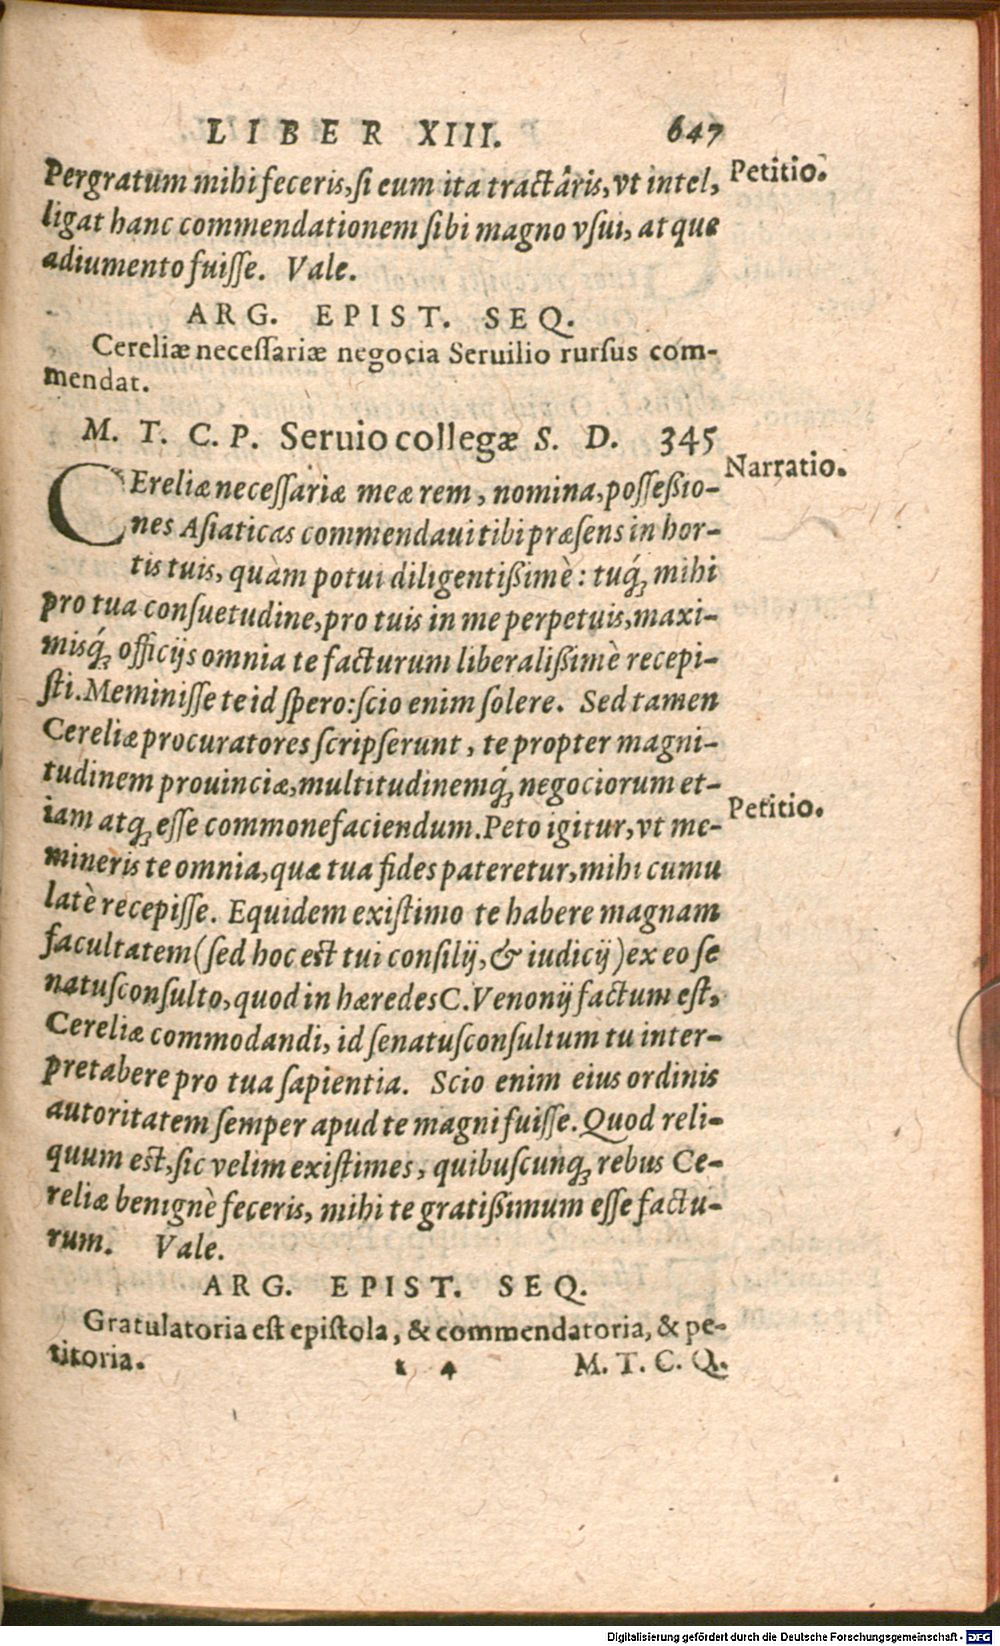 LIBER XIII. 647
Pergratum mihi feceris, si eum ita tractâris, vt intel, Petitio.
ligat hanc commendationem sibi magno vsui, atque
adiumento fuisse. Vale.
ARG. EPIST. SEQ.
Cereliæ necessariæ negocia Seruilio rursus com-
mendat.
M. T. C. P. Seruio collegæ S. D. 345
CEreliæ necessariæ meæ rem, nomina, possessio- Narratio.
nes Asiaticas commendaui tibi præsens in hor-
tis tuis, quàm potui diligentissimè: tuq́; mihi
pro tua consuetudine, pro tuis in me perpetuis, maxi-
misq́; officijs omnia te facturum liberalissimè recepi-
sti. Meminisse te id spero: scio enim solere. Sed tamen
Cereliæ procuratores scripserunt, te propter magni-
tudinem prouinciæ, multitudinemq́; negociorum et-
iam atq; esse commonefaciendum. Peto igitur, vt me- Petitio.
mineris te omnia, quæ tua fides pateretur, mihi cumu
latè recepisse. Equidem existimo te habere magnam
facultatem (sed hoc est tui consilij, & iudicij) ex eo se
natusconsulto, quod in hæredes C. Venonij factum est,
Cereliæ commodandi, id senatusconsultum tu inter-
pretabere pro tua sapientia. Scio enim eius ordinis
autoritatem semper apud te magni fuisse. Quod reli-
quum est, sic velim existimes, quibuscunq; rebus Ce-
reliæ benignè feceris, mihi te gratissimum esse factu-
rum. Vale.
ARG. EPIST. SEQ.
Gratulatoria est epistola, & commendatoria, & pe-
titoria. t 4 M. T. C. Q.
Digitalisierung gefördert durch die Deutsche Forschungsgemeinschaft - DFG